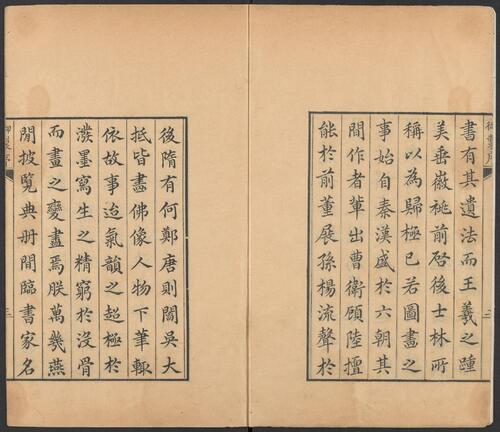 書有其遺法而王羲之踵
美垂徽祧前啓後士林所
稱以為歸極已若圖畫之
事始自秦漢盛於六朝其
間作者輩出曹衛顧陸擅
能於前董展孫楊流聲於
二
後隋有何鄭唐則閻吳大
抵皆畫佛像人物下筆輒
依故事迨氣韻之超極於
潑墨寫生之精窮於沒骨
而畫之變盡焉朕萬幾燕
閒披覽典册間臨書家名
三